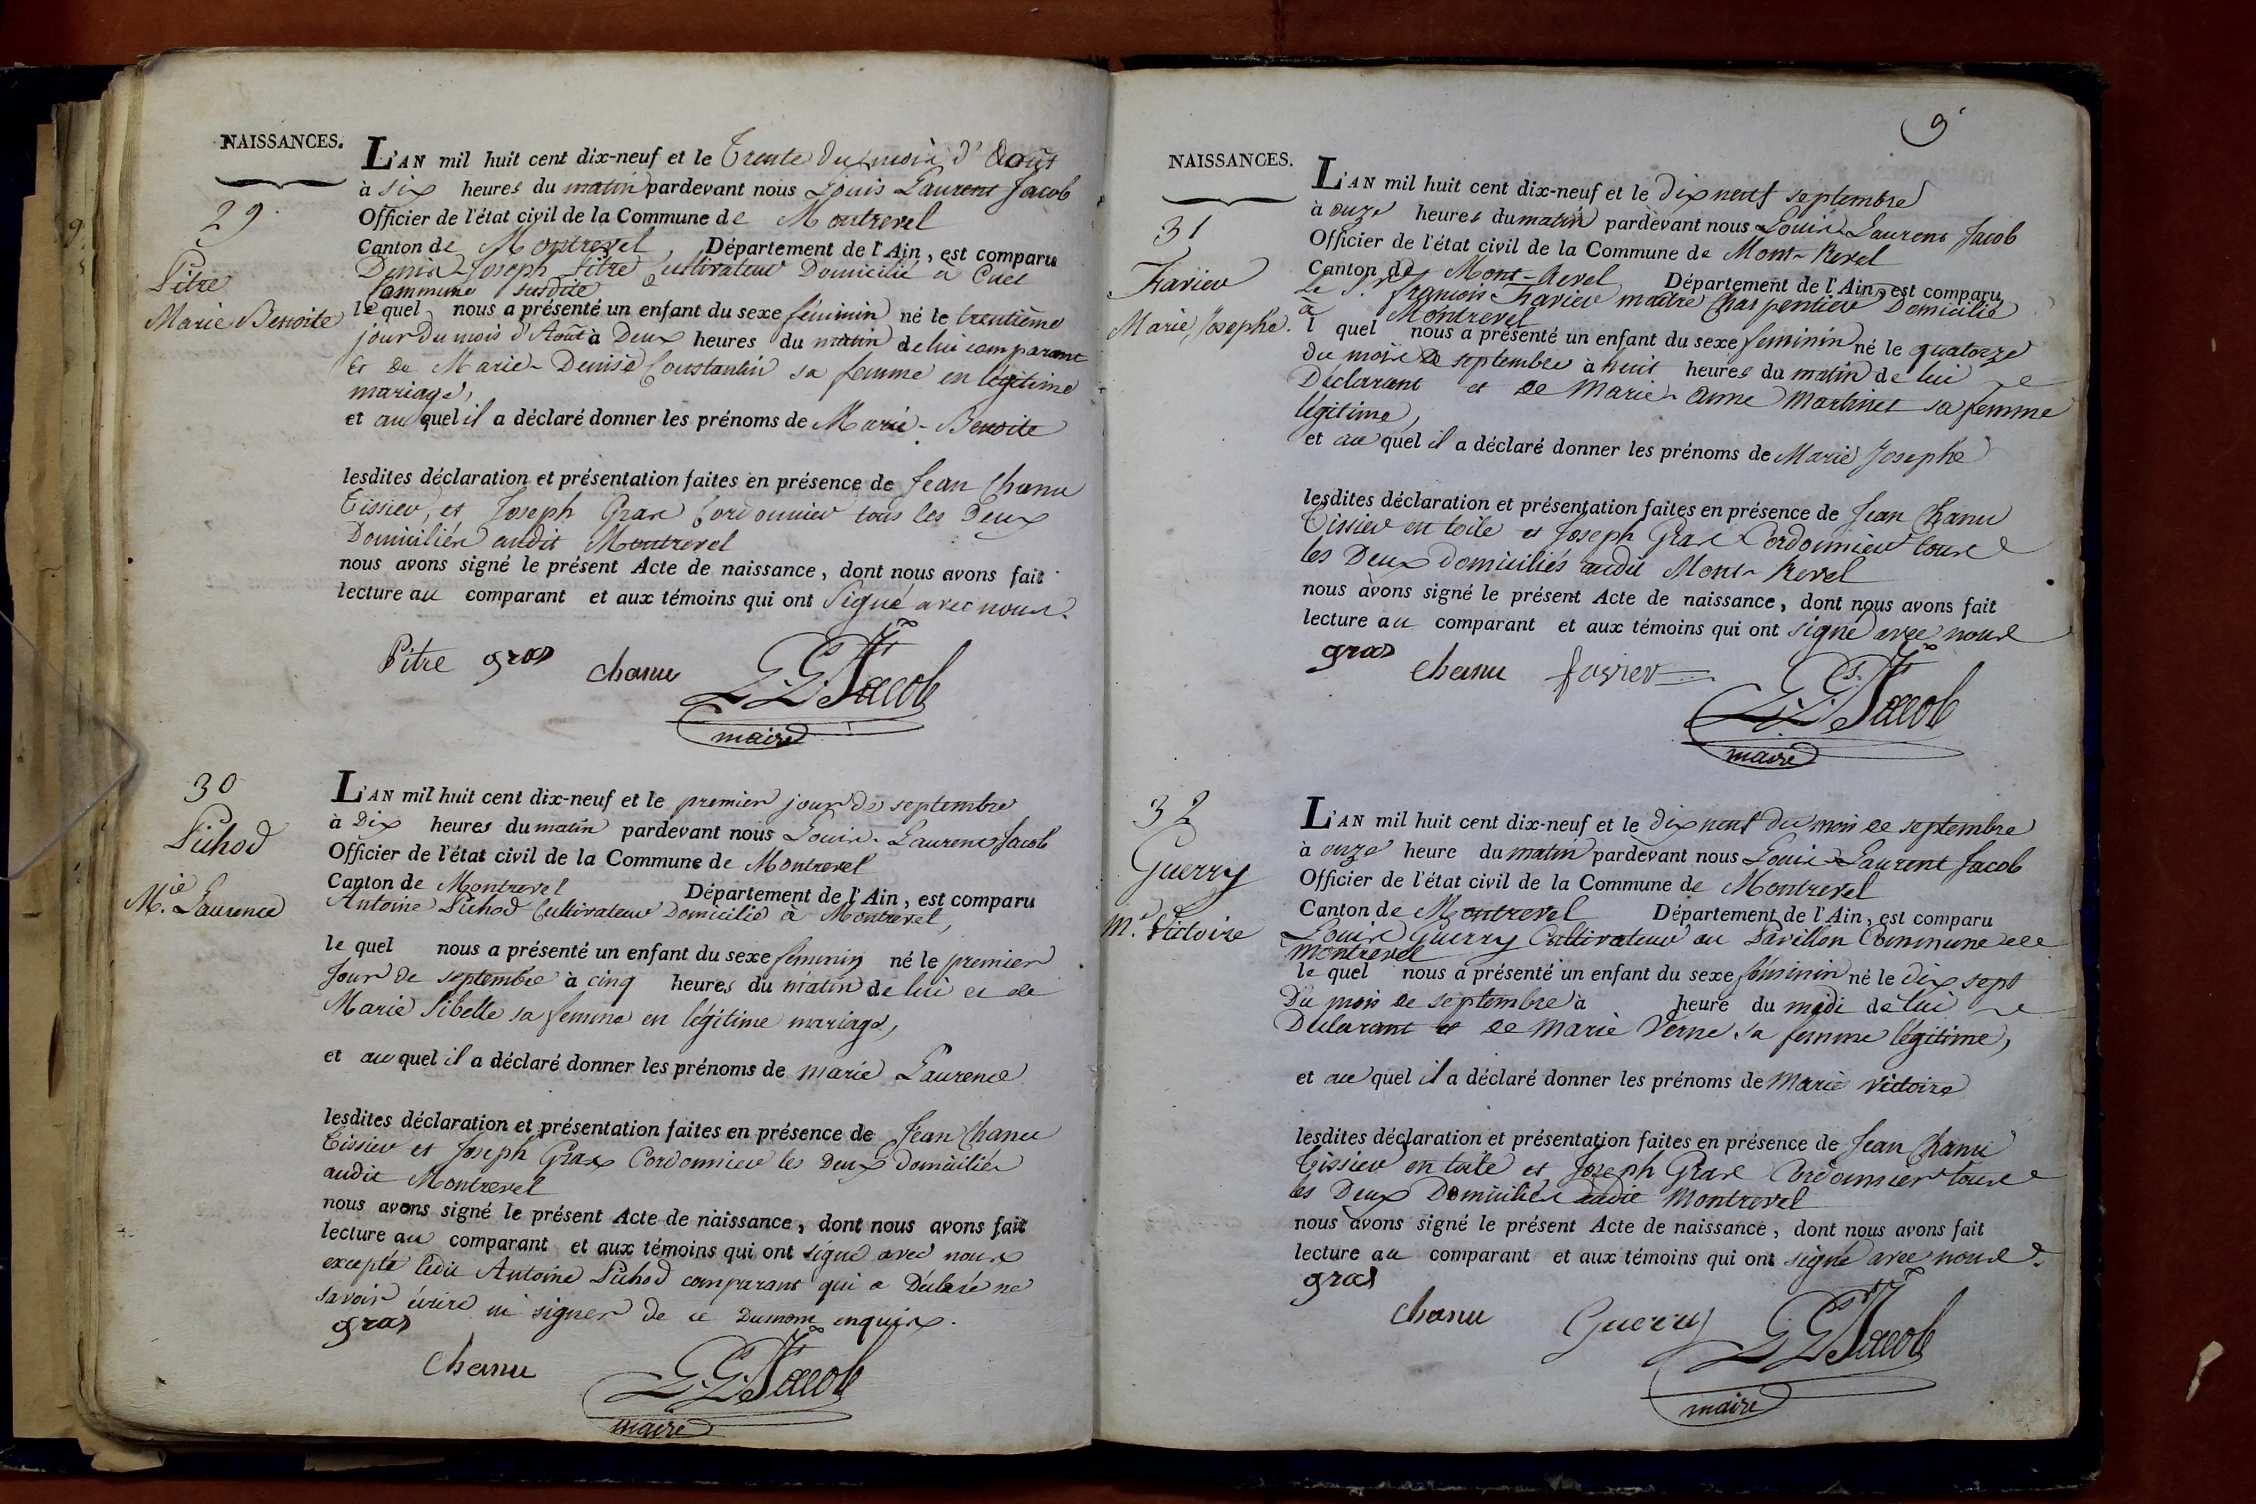 NAISSANCES.
29
Pitre
Marie Benoite
L'AN mil huit cent dix-neuf et le Trente du mois d'Août
à six heures du matin pardevant nous Louis Laurent Jacob
Officier de l'état civil de la Commune de Montrevel
Canton de Montrevel, Département de l'Ain, est comparu
Denis-Joseph Pitre Cultivateur Domicilié à Cuet
Commune susdite
le quel nous a présenté un enfant du sexe féminin né le trentième
jour du mois d'Août à Deux heures du matin de lui comparant
et de Marie-Denise Constantin sa femme en légitime
mariage,
et au quel il a déclaré donner les prénoms de Marie-Benoite
lesdites déclaration et présentation faites en présence de Jean Chanu
Tissier, et Joseph Gras Cordonnier tous les Deux
Domiciliés audit Montrevel
nous avons signé le présent Acte de naissance, dont nous avons fait
lecture au comparant et aux témoins qui ont signé avec nous.
Pitre gras chanu Jacob
maire
30
Pichod
M.ie Laurence
L'AN mil huit cent dix-neuf et le premier jour de septembre
à Dix heures du matin pardevant nous Louis-Laurent Jacob
Officier de l'état civil de la Commune de Montrevel
Canton de Montrevel Département de l'Ain, est comparu
Antoine Pichod Cultivateur Domicilié à Montrevel,
le quel nous a présenté un enfant du sexe féminin né le premier
Jour de septembre à cinq heures du matin de lui et de
Marie Sibelle sa femme en légitime mariage,
et au quel il a déclaré donner les prénoms de marie Laurence
lesdites déclaration et présentation faites en présence de Jean Chanu
Tissier et Joseph Gras Cordonnier les Deux domiciliés
audit Montrevel
nous avons signé le présent Acte de naissance, dont nous avons fait
lecture au comparant et aux témoins qui ont signé avec nous
excepté ledit Antoine Pichod comparant qui a Déclaré ne
savoir écrire ni signer de ce Dument enquis.
gras
chanu Jacob
maire
9
NAISSANCES.
31
Favier
Marie Josephe.
L'AN mil huit cent dix-neuf et le dix neuf septembre
à onze heures du matin pardevant nous Louis Laurent Jacob
Officier de l'état civil de la Commune de Mont-Revel
Canton de Mont-Revel Département de l'Ain, est comparu
le S.r françois Favier maître Charpentier Domicilié
à Montrevel
l quel nous a présenté un enfant du sexe féminin né le quatorze
du mois de septembre à huit heures du matin de lui
Déclarant et de Marie-Anne Martinet sa femme
légitime,
et au quel il a déclaré donner les prénoms de Marie Josephe
lesdites déclaration et présentation faites en présence de Jean Chanu
Tissier en toile et Joseph Gras Cordonnier tous
les Deux domiciliés audit Mont-Revel
nous avons signé le présent Acte de naissance, dont nous avons fait
lecture au comparant et aux témoins qui ont signé avec nous
gras chanu favier Jacob
maire
32
Guerry
M.e Victoire
L'AN mil huit cent dix-neuf et le dix neuf du mois de septembre
à onze heure du matin pardevant nous Louis Laurent Jacob
Officier de l'état civil de la Commune de Montrevel
Canton de Montrevel Département de l'Ain, est comparu
Louis Guerry Cultivateur au Pavillon Commune de
Montrevel
le quel nous a présenté un enfant du sexe féminin né le dix sept
Du mois de septembre à heure du midi de lui
Déclarant et de Marie Verne sa femme légitime,
et au quel il a déclaré donner les prénoms de Marie Victoire
lesdites déclaration et présentation faites en présence de Jean Chanu
Tissier en toile et Joseph Gras Cordonnier tous
les Deux Domiciliés audit Montrevel
nous avons signé le présent Acte de naissance, dont nous avons fait
lecture au comparant et aux témoins qui ont signé avec nous.
gras
chanu Guerry Jacob
maire